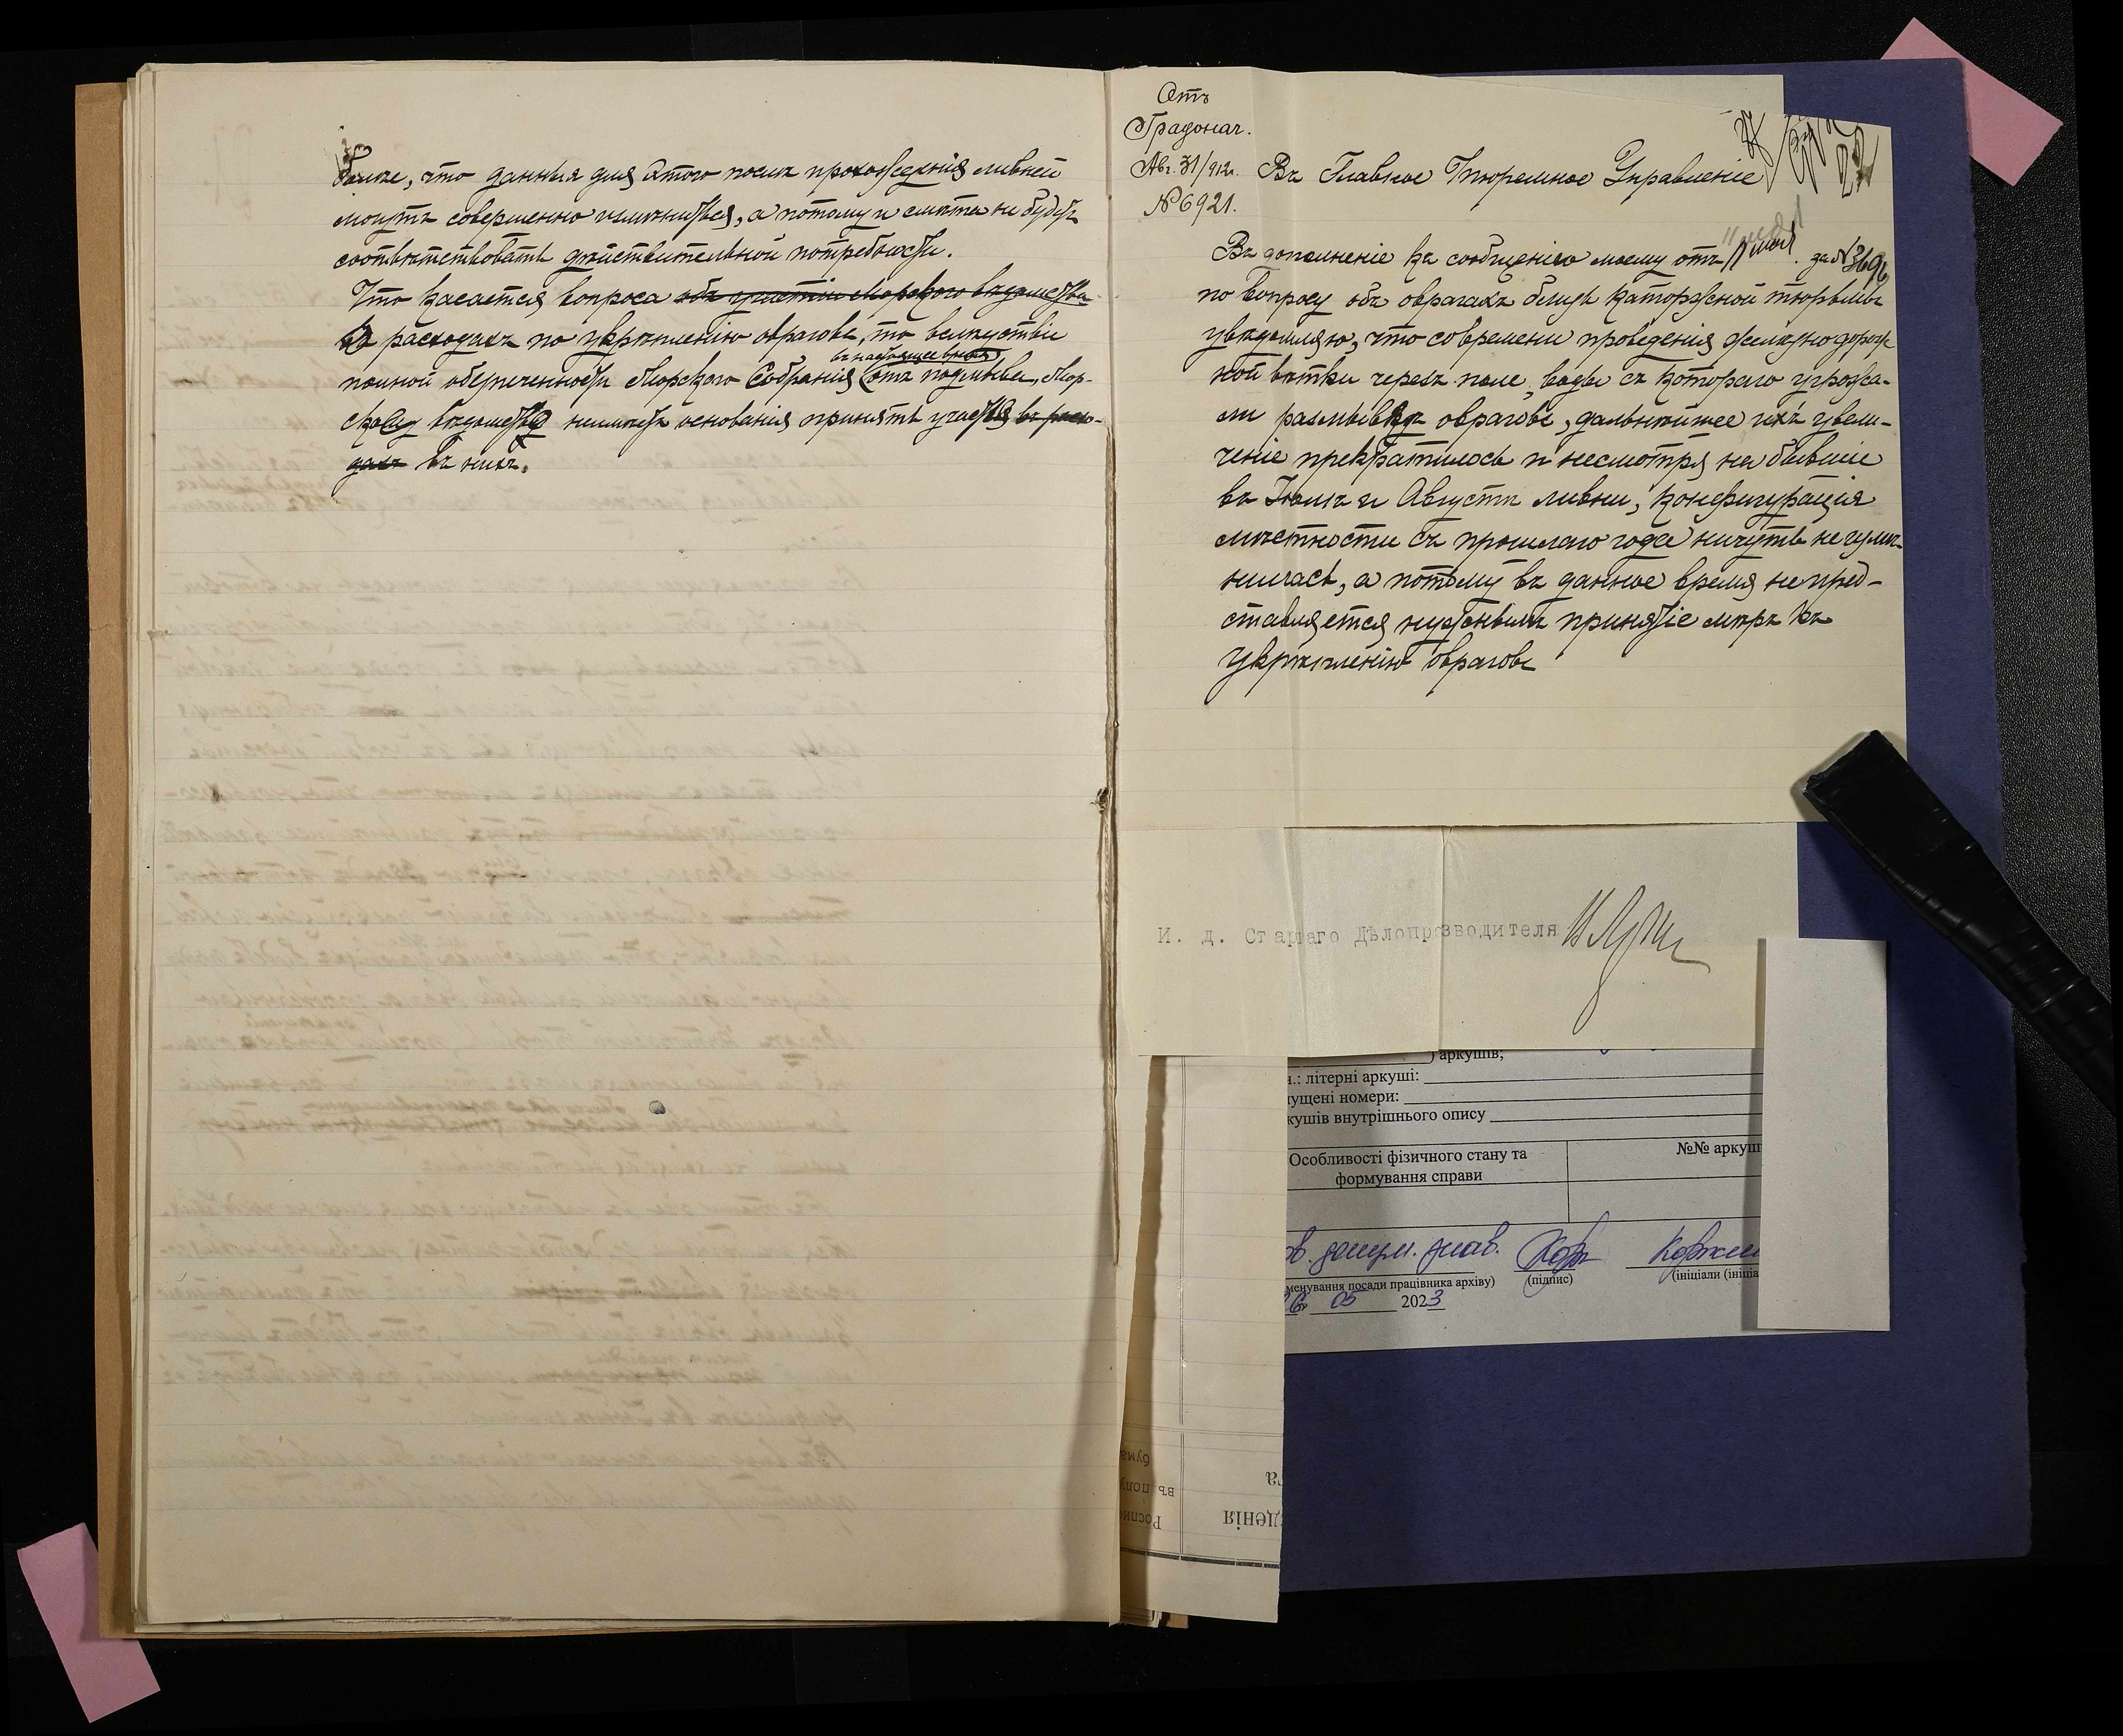 болѣе, что данныя для этого послѣ прохожденія ливней
могутъ совершенно измѣниться, а потому и смѣта не будетъ
соотвѣтствовать дѣйствительной потребности.
Что касается вопроса объ участіи Морского вѣдомства
въ расходахъ по укрѣпленію овраговъ, то вслѣдствіе
въ настоящее время,
полной обезпеченности Морского Собранія отъ подмыва, Мор-
скому вѣдомству нѣтъ основанія принять участія въ расхо-
дахъ въ нихъ.
Отъ
Градонач.
Авг. 31/912.
№ 6921.
Въ Главное Тюремное Управленіе
Въ дополненіе къ сообщенію моему отъ 11 мая за № 3696
по вопросу объ оврагахъ близъ каторжной тюрьмы
увѣдомляю, что со времени проведенія желѣзнодорож
ной вѣтки черезъ поле, воды съ котораго угрожа-
ли размывомъ овраговъ, дальнѣйшее ихъ увели-
ченіе прекратилось и несмотря на бывшіе
въ Іюлѣ и Августѣ ливни, конфигурація
мѣстности съ прошлаго года ничуть не измѣ-
нилась, а потому въ данное время не пред-
ставляется нужнымъ принятіе мѣръ къ
укрѣпленію овраговъ
И. д. Старшаго Дѣлопрозводителя
) аркушів;
.: літерні аркуші:
ущені номери:
кушів внутрішнього опису
Особливості фізичного стану та
формування справи
№№ аркуш
менування посади працівника архіву)
(підпис)
(ініціали (ініціа
26 05 2023
бума
въ полу
Роспис
денія